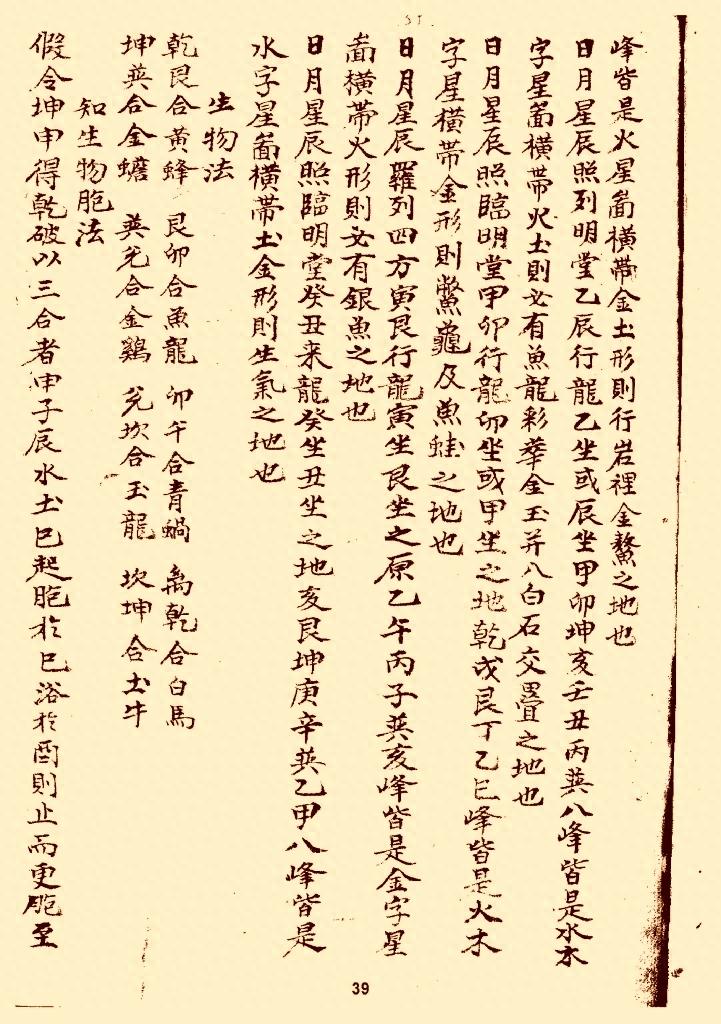 峰皆是火星崮橫帶金土形則行岩裡金鰲之地也
日月星辰照列明堂乙辰行龍乙坐或辰坐甲卯坤亥壬丑丙巽八峰皆是水木
字星崮橫帶火土則必有魚龍彩華金玉并八白石交疊之地也
日月星辰照臨明堂甲卯行龍卯坐或甲坐之地乾戌艮丁乙巳峰皆是火木
字星橫帶金形則鱉龜及魚蛙之地也
日月星辰羅列四方寅艮行龍寅坐艮坐之原乙午丙子巽亥峰皆是金字星
崮橫帶火形則必有銀魚之地也
日月星辰照臨明堂癸丑來龍癸坐丑坐之地亥艮坤庚辛巽乙甲八峰皆是
水字星崮橫帶土金形則生氣之地也
生物法
乾艮合黃蜂 艮卯合魚龍 卯午合青蝸 离乾合白馬
坤巽合金蟾 巽兌合金鷄 兌坎合玉龍 坎坤合土牛
知生物胞法
假令坤申得乾破以三合者申子辰水土巳起胞於巳浴於酉則止而更胞至
39